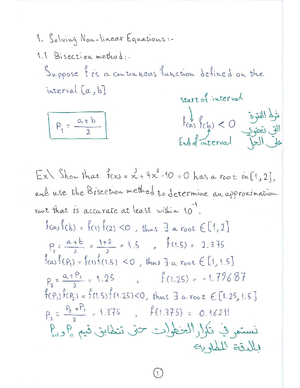 1. Solving Non-linear Equations:-
1.1 Bisection method:-
Suppose f is a continuous function defined on the
interval [a, b]
start of interval
P₁ = a+b / 2
f(a) f(b) < 0
شرط الفترة
التي تحتوي
على الحل
End of interval
Ex\ Show that f(x) = x³ + 4x² - 10 = 0 has a root in [1, 2],
and use the Bisection method to determine an approximation
root that is accurate at least within 10⁻⁴.
f(a) f(b) = f(1) f(2) < 0 , thus ∃ a root ∈ [1, 2]
P₁ = a+b / 2 = 1+2 / 2 = 1.5 , f(1.5) = 2.375
f(a) f(P₁) = f(1) f(1.5) < 0 , thus ∃ a root ∈ [1, 1.5]
P₂ = a+P₁ / 2 = 1.25 , f(1.25) = -1.79687
f(P₁) f(P₂) = f(1.5) f(1.25) < 0, thus ∃ a root ∈ [1.25, 1.5]
P₃ = P₂+P₁ / 2 = 1.375 , f(1.375) = 0.16211
نستمر في تكرار الخطوات حتى تتطابق قيم Pₙ و Pₙ₊₁
بالدقة المطلوبة
1